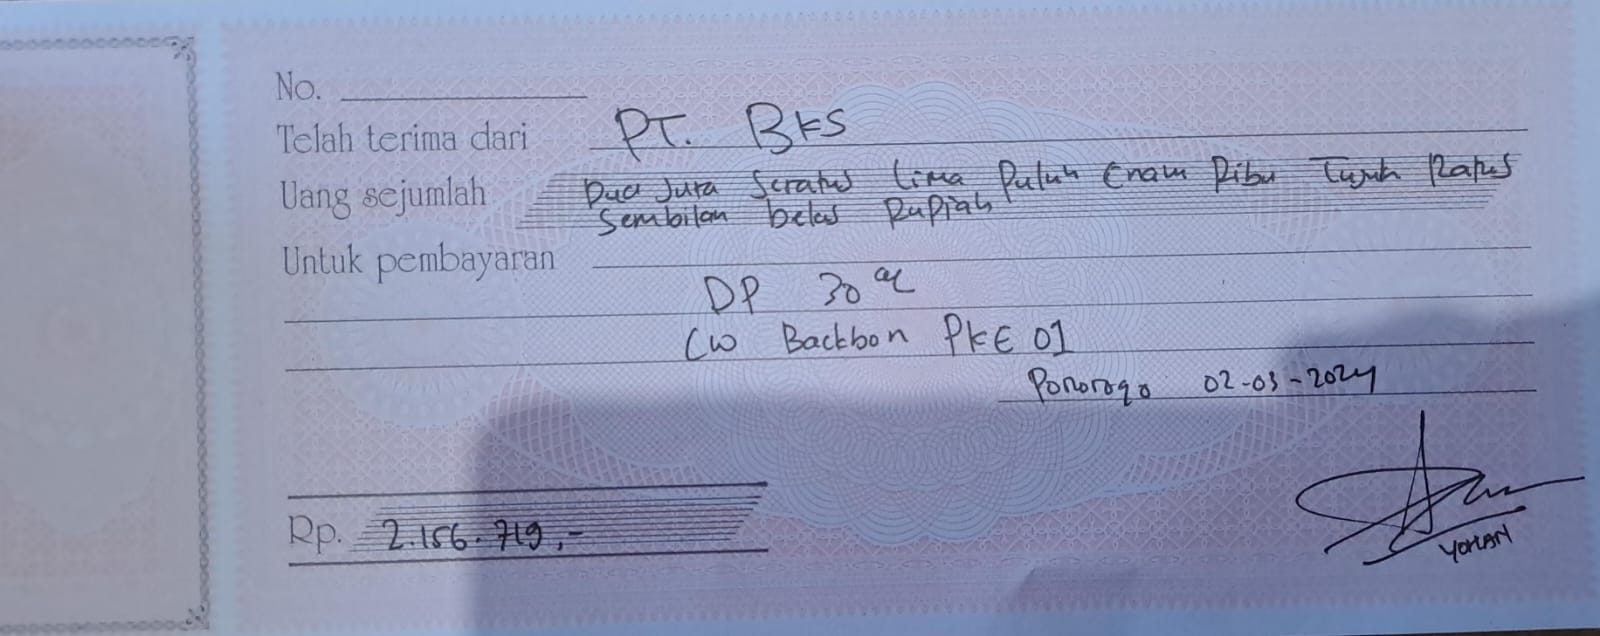 No.
Telah terima dari PT. BKS
Uang sejumlah Dua Juta Seratus Lima Puluh Enam Ribu Tujuh Ratus
Sembilan belas Rupiah
Untuk pembayaran
DP 30%
CW Backbon PKE 01
Ponorogo 02-03-2024
Rp. 2.156.719,-
YOHAN